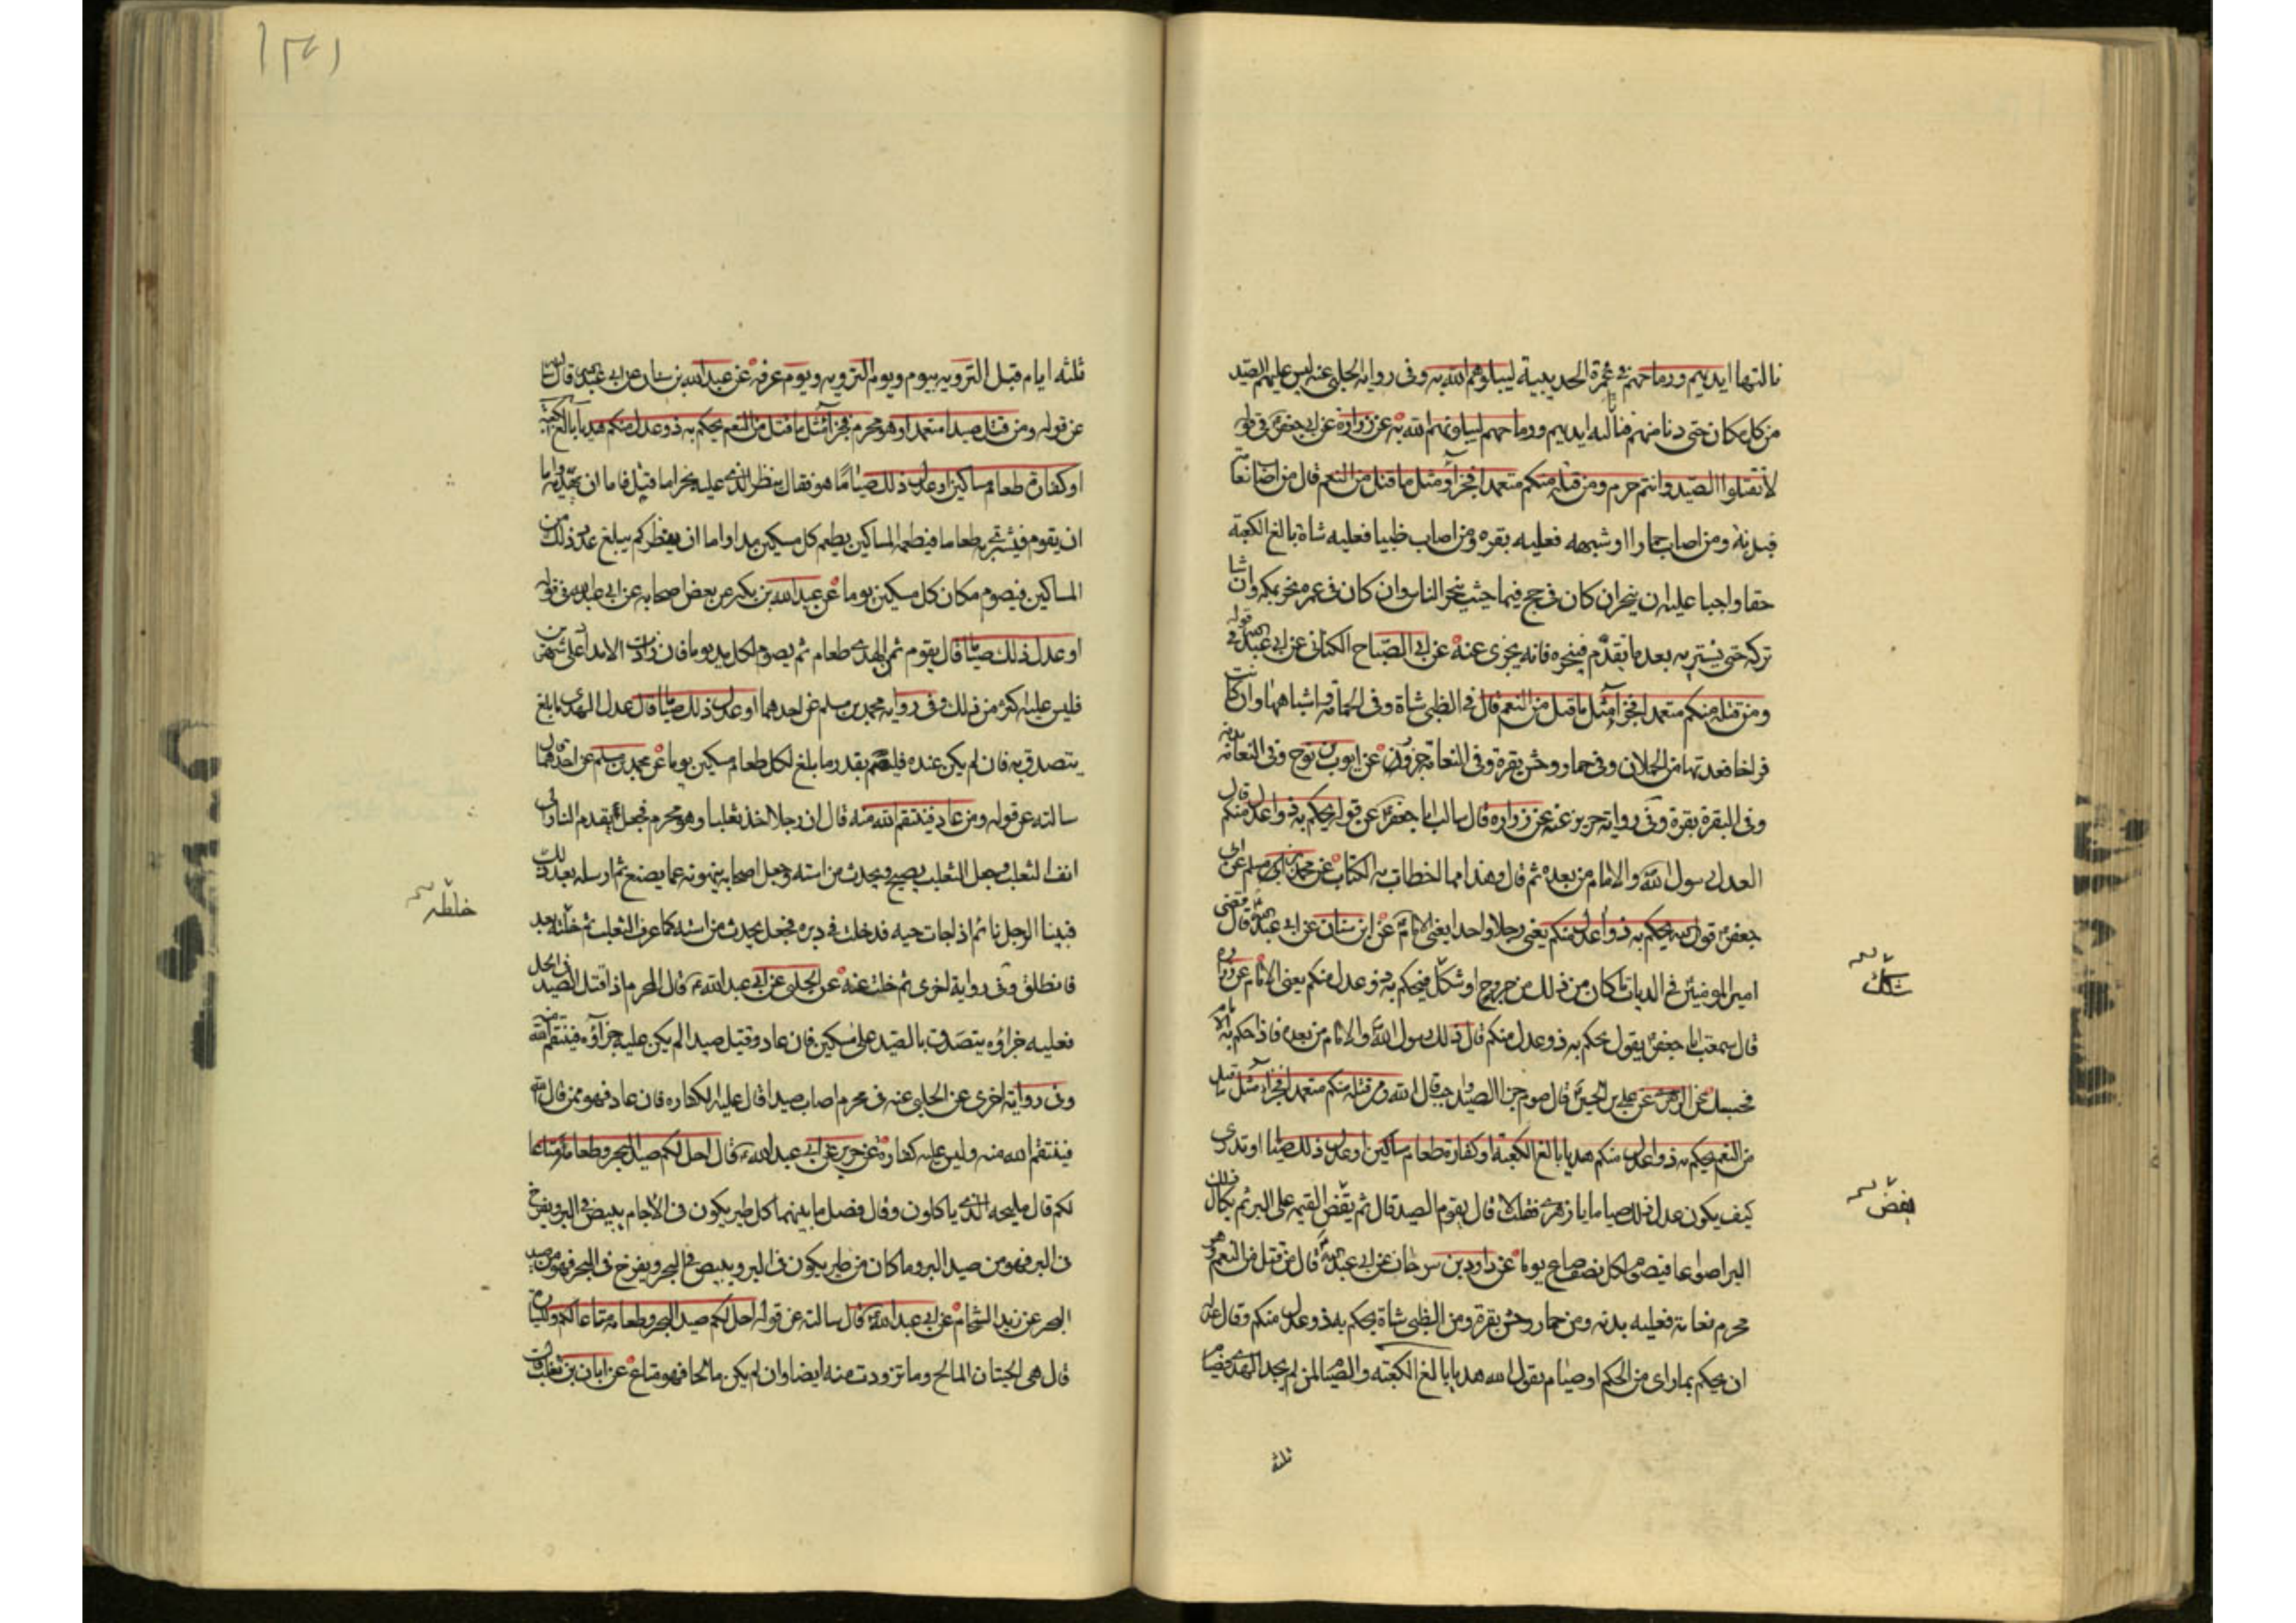 نالتها ايديهم ورماحهم في عمرة الحديبية ليبلوهم الله به وفى رواية الحلبى عنه ليس عليهم الصيد
من كل مكان حتى دنا منهم فنالته ايديهم ورماحهم ليبلونهم الله به عن زرارة عن ابي جعفر في قوله
لا تقتلوا الصيد وانتم حرم ومن قتله منكم متعمدا فجزاؤ مثل ما قتل من النعم قال من اصاب نعامة
فبدنة ومن اصاب حمارا او شبهه فعليه بقره ومن اصاب ظبيا فعليه شاة بالغ الكعبة
حقا واجبا عليه ان ينحر ان كان في حج فبمنى حيث ينحر الناس وان كان فى عمره نحر بمكه وان شا
تركه حتى يشتريه بعد ما يقدم فينحره فانه يجزى عنه عن ابي الصباح الكنانى عن ابي عبد الله في قوله
ومن قتله منكم متعمدا فجزآ مثل ما قتل من النعم قال في الظبى شاة وفى الحمامة واشباهها وان كانت
فراخا فعدتها من الحملان وفى حمار وحش بقرة وفى النعامة جزور عن ايوب بن نوح وفى النعامة بدنه
وفى البقرة بقرة وفى رواية حريز عنه عن زراره قال سالت ابا جعفر عن قوله يحكم به ذوا عدل منكم قال
العدل رسول الله والامام من بعده ثم قال وهذا مما اخطات به الكتاب عن محمد بن مسلم عن ابى
جعفر فى قول الله يحكم به ذوا عدل منكم يعنى رجلا واحدا يعنى الامام عن ابن سنان عن ابي عبد الله قال قضى
امير المومنين في الديات ما كان من ذلك من جروح او شكل فيحكم به ذو عدل منكم يعنى الامام عن زراره
قال سمعت ابا جعفر يقول يحكم به ذو عدل منكم قال ذلك رسول الله والامام من بعده فاذا حكم به الامام
فحسبك عن الزهرى عن علي بن الحسين قال صوم جزا الصيد واجب قال الله ومن قتله منكم متعمدا فجزآ مثل ما قتل
من النعم يحكم به ذوا عدل منكم هديا بالغ الكعبة او كفارة طعام مساكين او عدل ذلك صياما او تدرى
كيف يكون عدل ذلك صياما يا زهرى فقلت لا قال يقوم الصيد قال ثم يقض القيمه على البر ثم يكال ذلك
البر اصواعا فيصوم لكل نصف صاع يوما عن داود بن سرحان عن ابي عبد الله قال من قتل من النعم وهو
محرم نعامة فعليه بدنه ومن حمار وحش بقرة ومن الظبى شاة يحكم به ذو عدل منكم وقال عدله
ان يحكم بما راى من الحكم او صيام يقول الله هديا بالغ الكعبه والصيام لمن لم يجد الهدى فصيام
ثلثه
شكل
يفض
ثلثه ايام قبل الترويه بيوم ويوم الترويه ويوم عرفه عن عبد الله بن سنان عن ابي عبد الله قال سالته
عن قوله ومن قتل صيدا متعمدا وهو محرم فجزآ مثل ما قتل من النعم يحكم به ذو عدل منكم هديا بالغ الكعبة
او كفارة طعام مساكين او عدل ذلك صياما ما هو فقال ينظر الذى عليه بجزا ما قتل فاما ان يهديه واما
ان يقوم فيشترى به طعاما فيطعمه المساكين يطعم كل مسكين مدا واما ان ينظر كم يبلغ عدد ذلك من
المساكين فيصوم مكان كل مسكين يوما عن عبد الله بن بكير عن بعض اصحابه عن ابي عبد الله فى قوله
او عدل ذلك صياما قال يقوم ثمن الهدى طعام ثم يصوم لكل مد يوما فان زادت الامداد على شهرين
فليس عليه اكثر من ذلك وفى رواية محمد بن مسلم عن احدهما او عدل ذلك صياما قال عدل الهدى ما بلغ
يتصدق به فان لم يكن عنده فليصم بقدر ما بلغ لكل طعام مسكين يوما عن محمد بن مسلم عن احدهما قال
سالته عن قوله ومن عاد فينتقم الله منه قال ان رجلا اخذ ثعلبا وهو محرم فجعل يقدم النار الى
انف الثعلب وجعل الثعلب يصيح ويحدث من استه وجعل اصحابه ينهونه عما يصنع ثم ارسله بعد ذلك
فبينا الرجل نائم اذ جات حيه فدخلت في دبره فجعل يحدث من استه كما عرف الثعلب ثم خلته بعد
فانطلق وفى رواية اخرى ثم خلت عنه عن الحلبى عن ابي عبد الله قال المحرم اذا قتل الصيد فى الحل
فعليه جزاؤه يتصدق بالصيد على مسكين فان عاد وقتل صيدا لم يكن عليه جزآؤه فينتقم الله منه
وفى رواية اخرى عن الحلبى عنه فى محرم اصاب صيدا قال عليه الكفاره فان عاد فهو ممن قال الله
فينتقم الله منه وليس عليه كفاره عن حريز عن ابي عبد الله قال احل لكم صيد البحر وطعامه متاعا
لكم قال مليحه الذى ياكلون وقال فصل ما بينهما كل طير يكون فى الاجام يبيض فى البر ويفرخ
فى البر فهو من صيد البر وما كان من طير يكون فى البر ويبيض في البحر ويفرخ فى البحر فهو من صيد
البحر عن زيد الشحام عن ابي عبد الله قال سالته عن قوله احل لكم صيد البحر وطعامه متاعا لكم وللسيارة
قال هى الحيتان المالح وما تزودت منه ايضا وان لم يكن مالحا فهو متاع عن ابان بن تغلب
خلطه